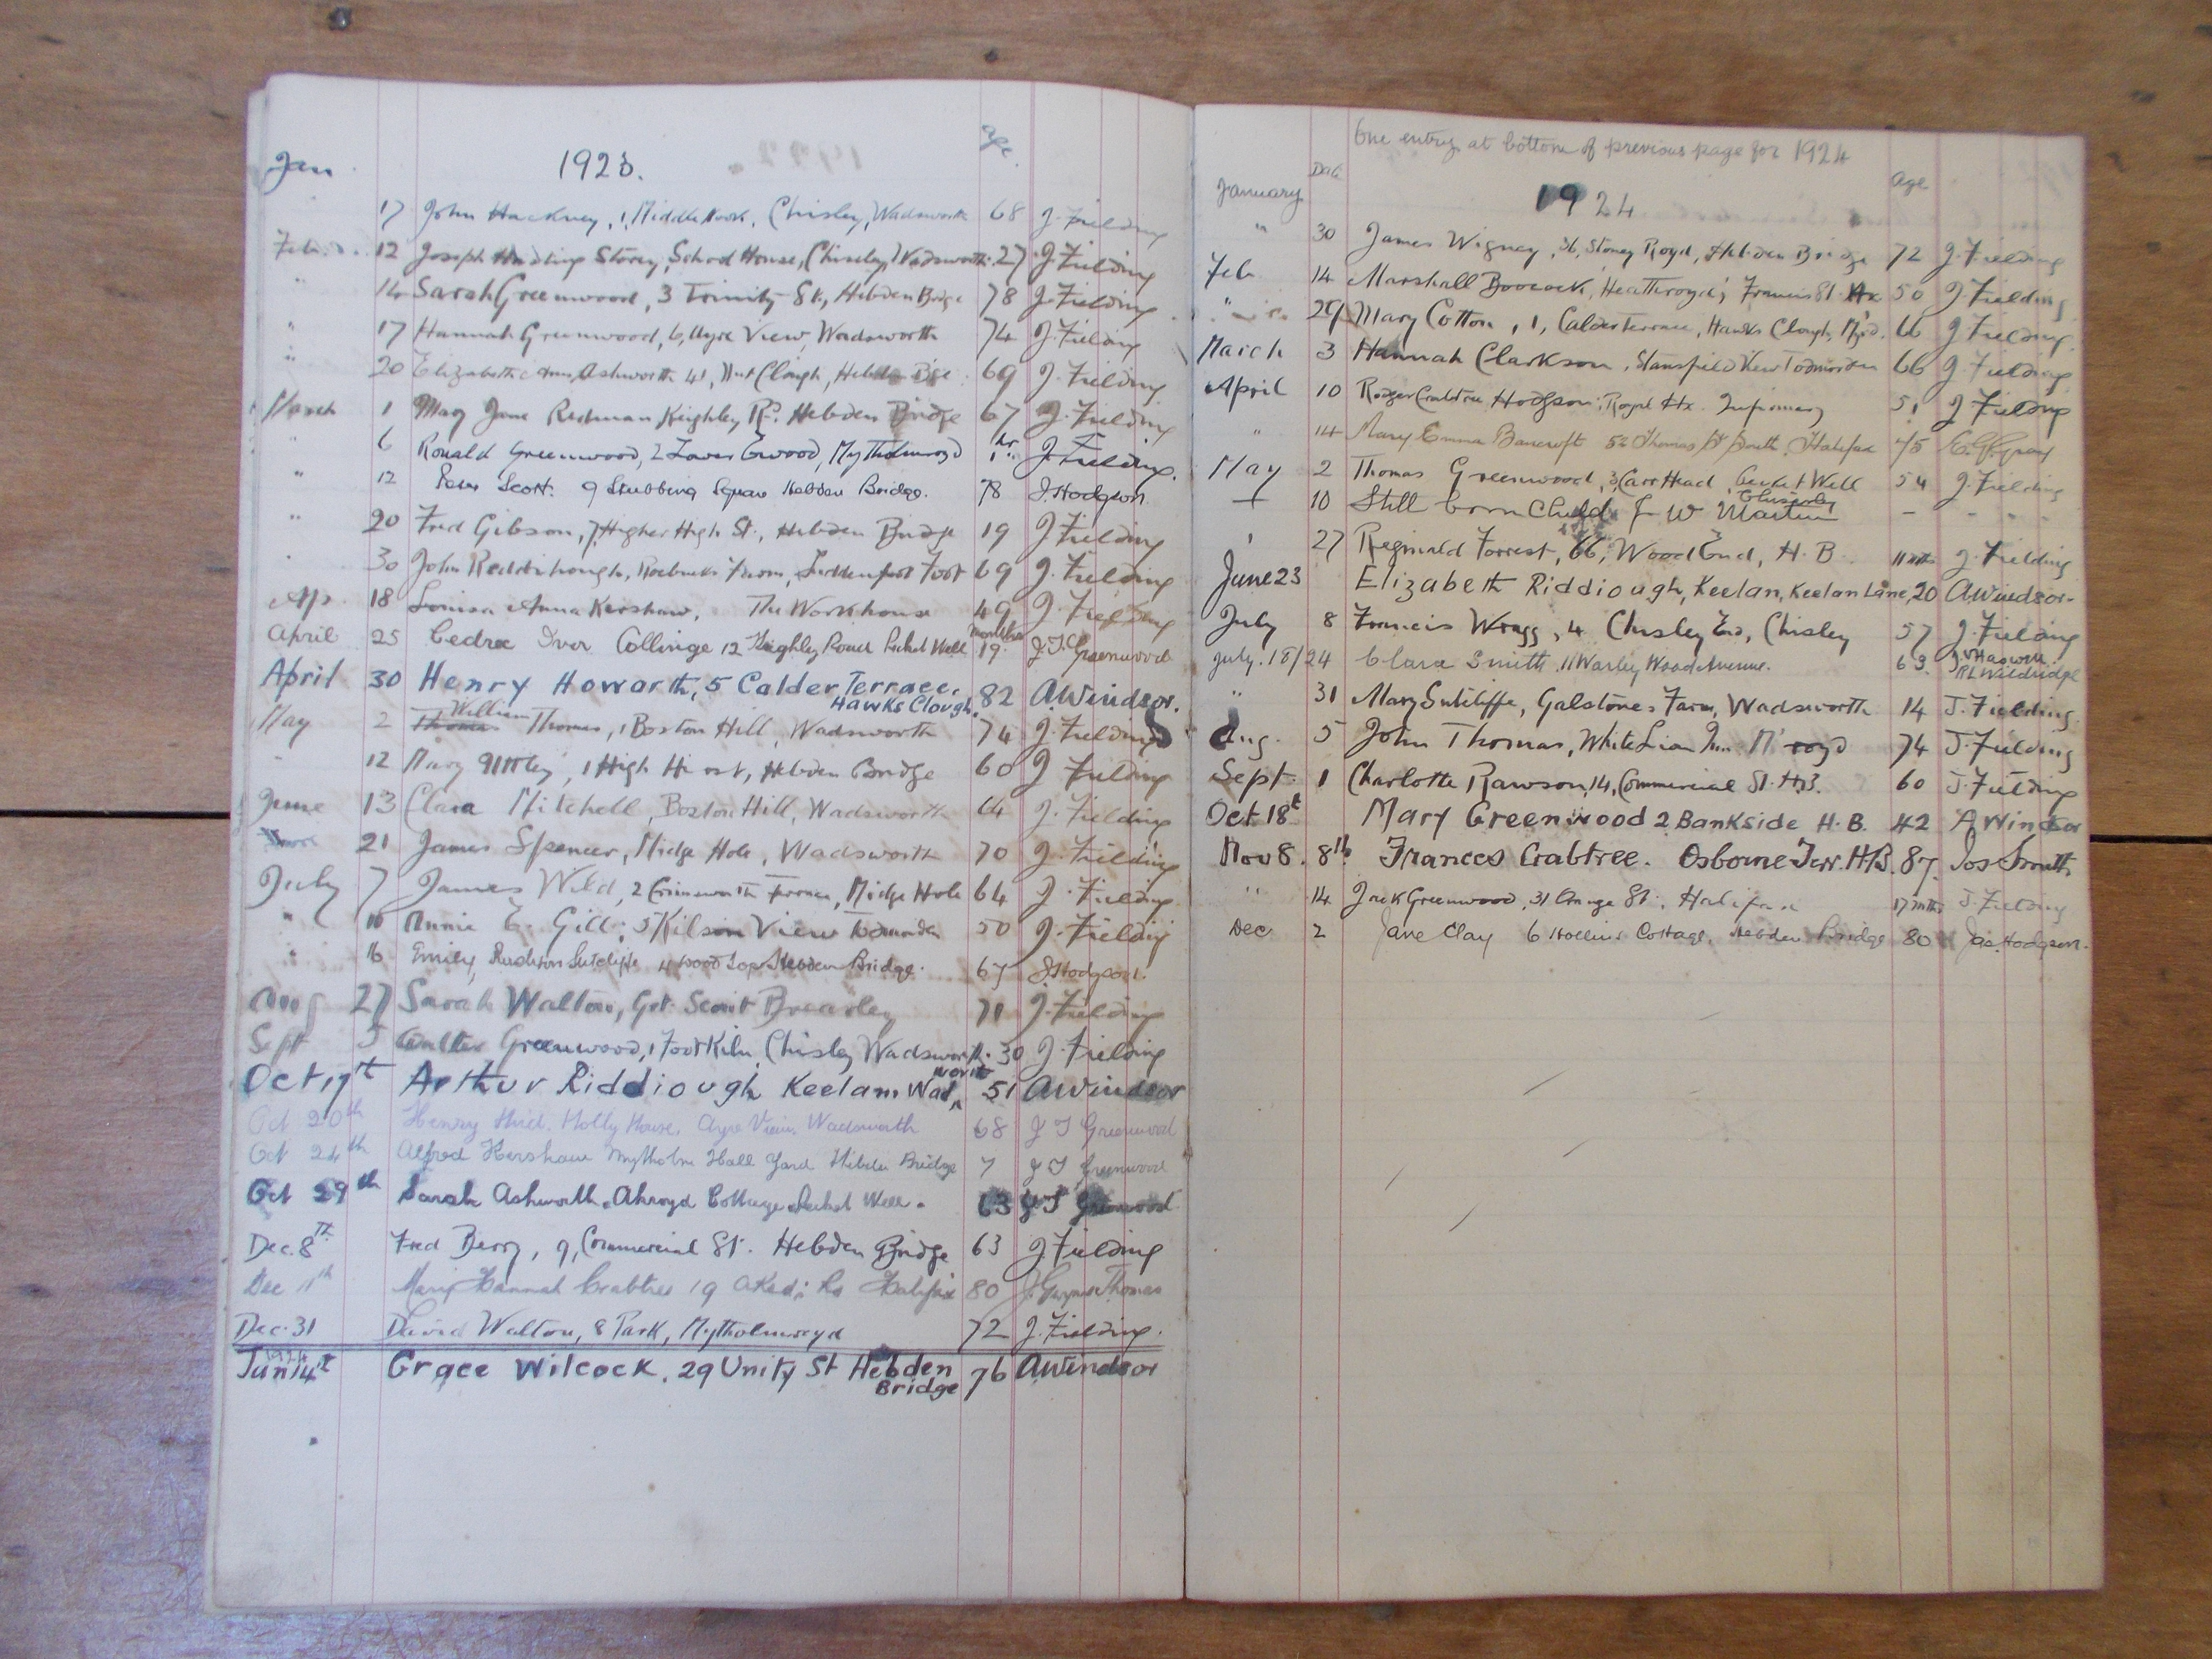 Jan 1923. Age
17 John Hackney, 1, Middle Nook, Chisley, Wadsworth 68 J. Fielding
Feb. 12 Joseph Harling Storey, School House, Chiseley, Wadsworth. 27 J. Fielding
" 14 Sarah Greenwood, 3 Trinity St., Hebden Bridge 78 J. Fielding
" 17 Hannah Greenwood, 6, Ayre View, Wadsworth 74 J. Fielding
" 20 Elizabeth Ann Ashworth 41, Nut Clough, Hebden Bge 69 J. Fielding
March 1 Mary Jane Redman Keighley Rd. Hebden Bridge 67 J. Fielding
" 6 Ronald Greenwood, 2 Lower Ewood, Mytholmroyd 1 hr J. Fielding
" 12 Scott. 9 Stubbing Square Hebden Bridge. 78 J. Hodgson
" 20 Fred Gibson, 7, Higher High St., Hebden Bridge 19 J. Fielding
30 John Reddihough, Roebucks Farm, Luddenfoot Foot 69 J. Fielding
Ap. 18 Louisa Anna Kershaw, The Workhouse 49 J. Fielding
April 25 Cedric Ivor Collinge 12 Keighley Road Pecket Well 19 months J. T. Greenwood
April 30 Henry Howorth, 5 Calder Terrace, Hawks Clough. 82 A Windsor.
May 2 William Thomas, 1 Boston Hill, Wadsworth 74 J. Fielding
" 12 Mary 1 High Hirst, Hebden Bridge 60 J Fielding
June 13 Clara Mitchell, Boston Hill, Wadsworth 64 J. Fielding
21 James Spencer, Midge Hole, Wadsworth 70 J. Fielding
July 7 James Wild, 2 Crimsworth Terrace, Midge Hole 64 J. Fielding
" 10 Annie E. Gill, 5 Kilson View Todmorden 50 J. Fielding
" 16 Emily Sutcliffe 4 Wood Top Hebden Bridge. 67 J. Hodgson.
Aug 27 Sarah Walton, Gt. Scout Brearley 71 J. Fielding
Sept 5 Walter Greenwood, 1 Foot Kiln, Chisley Wadsworth. 30 J. Fielding
Oct 17th Arthur Riddiough Keelam Wadsworth 51 A Windsor
Oct 20th Henry Hird. Holly House. Ayre View. Wadsworth 68 J T Greenwood
Oct 24th Alfred Kershaw Mytholm Hall Yard Hebden Bridge 7 J T Greenwood
Oct 29th Sarah Ashworth. Akroyd Cottage Pecket Well. 63 J T Greenwood
Dec. 8th Fred Berry, 9, Commercial St. Hebden Bridge 63 J. Fielding
Dec 11th Mary Hannah Crabtree 19 Rd Halifax 80 J. Gwynne Thomas
Dec. 31 David Walton, 8 Park, Mytholmroyd 72 J. Fielding.
1924
Jan 14th Grace Wilcock, 29 Unity St Hebden Bridge 76 A Windsor
One entry at bottom of previous page for 1924
January Date 1924 Age
" 30 James Wigney, 36, Stoney Royd, Hebden Bridge 72 J. Fielding
Feb 14 Marshall Boocock, Heathroyd, Francis St. Hx 50 J. Fielding
" 29 Mary Cotton, 1, Calder Terrace, Hawks Clough, M'yd. 66 J Fielding.
March 3 Hannah Clarkson, Stansfield View Todmorden 66 J. Fielding
April 10 Roger Crabtree Hodgson, Royal Hx. Infirmary 51 J Fielding
" 14 Mary Emma Bancroft 52 Thomas St South, Halifax 75 Gray
May 2 Thomas Greenwood, 3 Carr Head, Pecket Well 54 J. Fielding
10 Still born Child J W Martin Chiseley -
27 Reginald Forrest, 66, Wood End, H. B. 11 mths J. Fielding
June 23 Elizabeth Riddiough, Keelan, Keelan Lane, 20 A Windsor
July 8 Francis Wragg, 4 Chisley End, Chisley 57 J. Fielding
July. 18/24 Clara Smith, 11 Warley Wood Avenue. 63.
" 31 Mary Sutcliffe, Galstones Farm, Wadsworth 14 J. Fielding.
Aug. 5 John Thomas, White Lion Inn. M'royd 74 J. Fielding
Sept. 1 Charlotte Rawson, 14, Commercial St. H.B. 60 J. Fielding
Oct 18t Mary Greenwood 2 Bankside H. B. 42 A Windsor
Nov 8. 8th Frances Crabtree. Osborne Terr. H.B. 87. Jos Smith
" 14 Jack Greenwood, 31 Grange St., Halifax 17 mths J. Fielding
Dec 2 Jane Clay 6 Hollins Cottage, Hebden Bridge 80 Jas Hodgson.